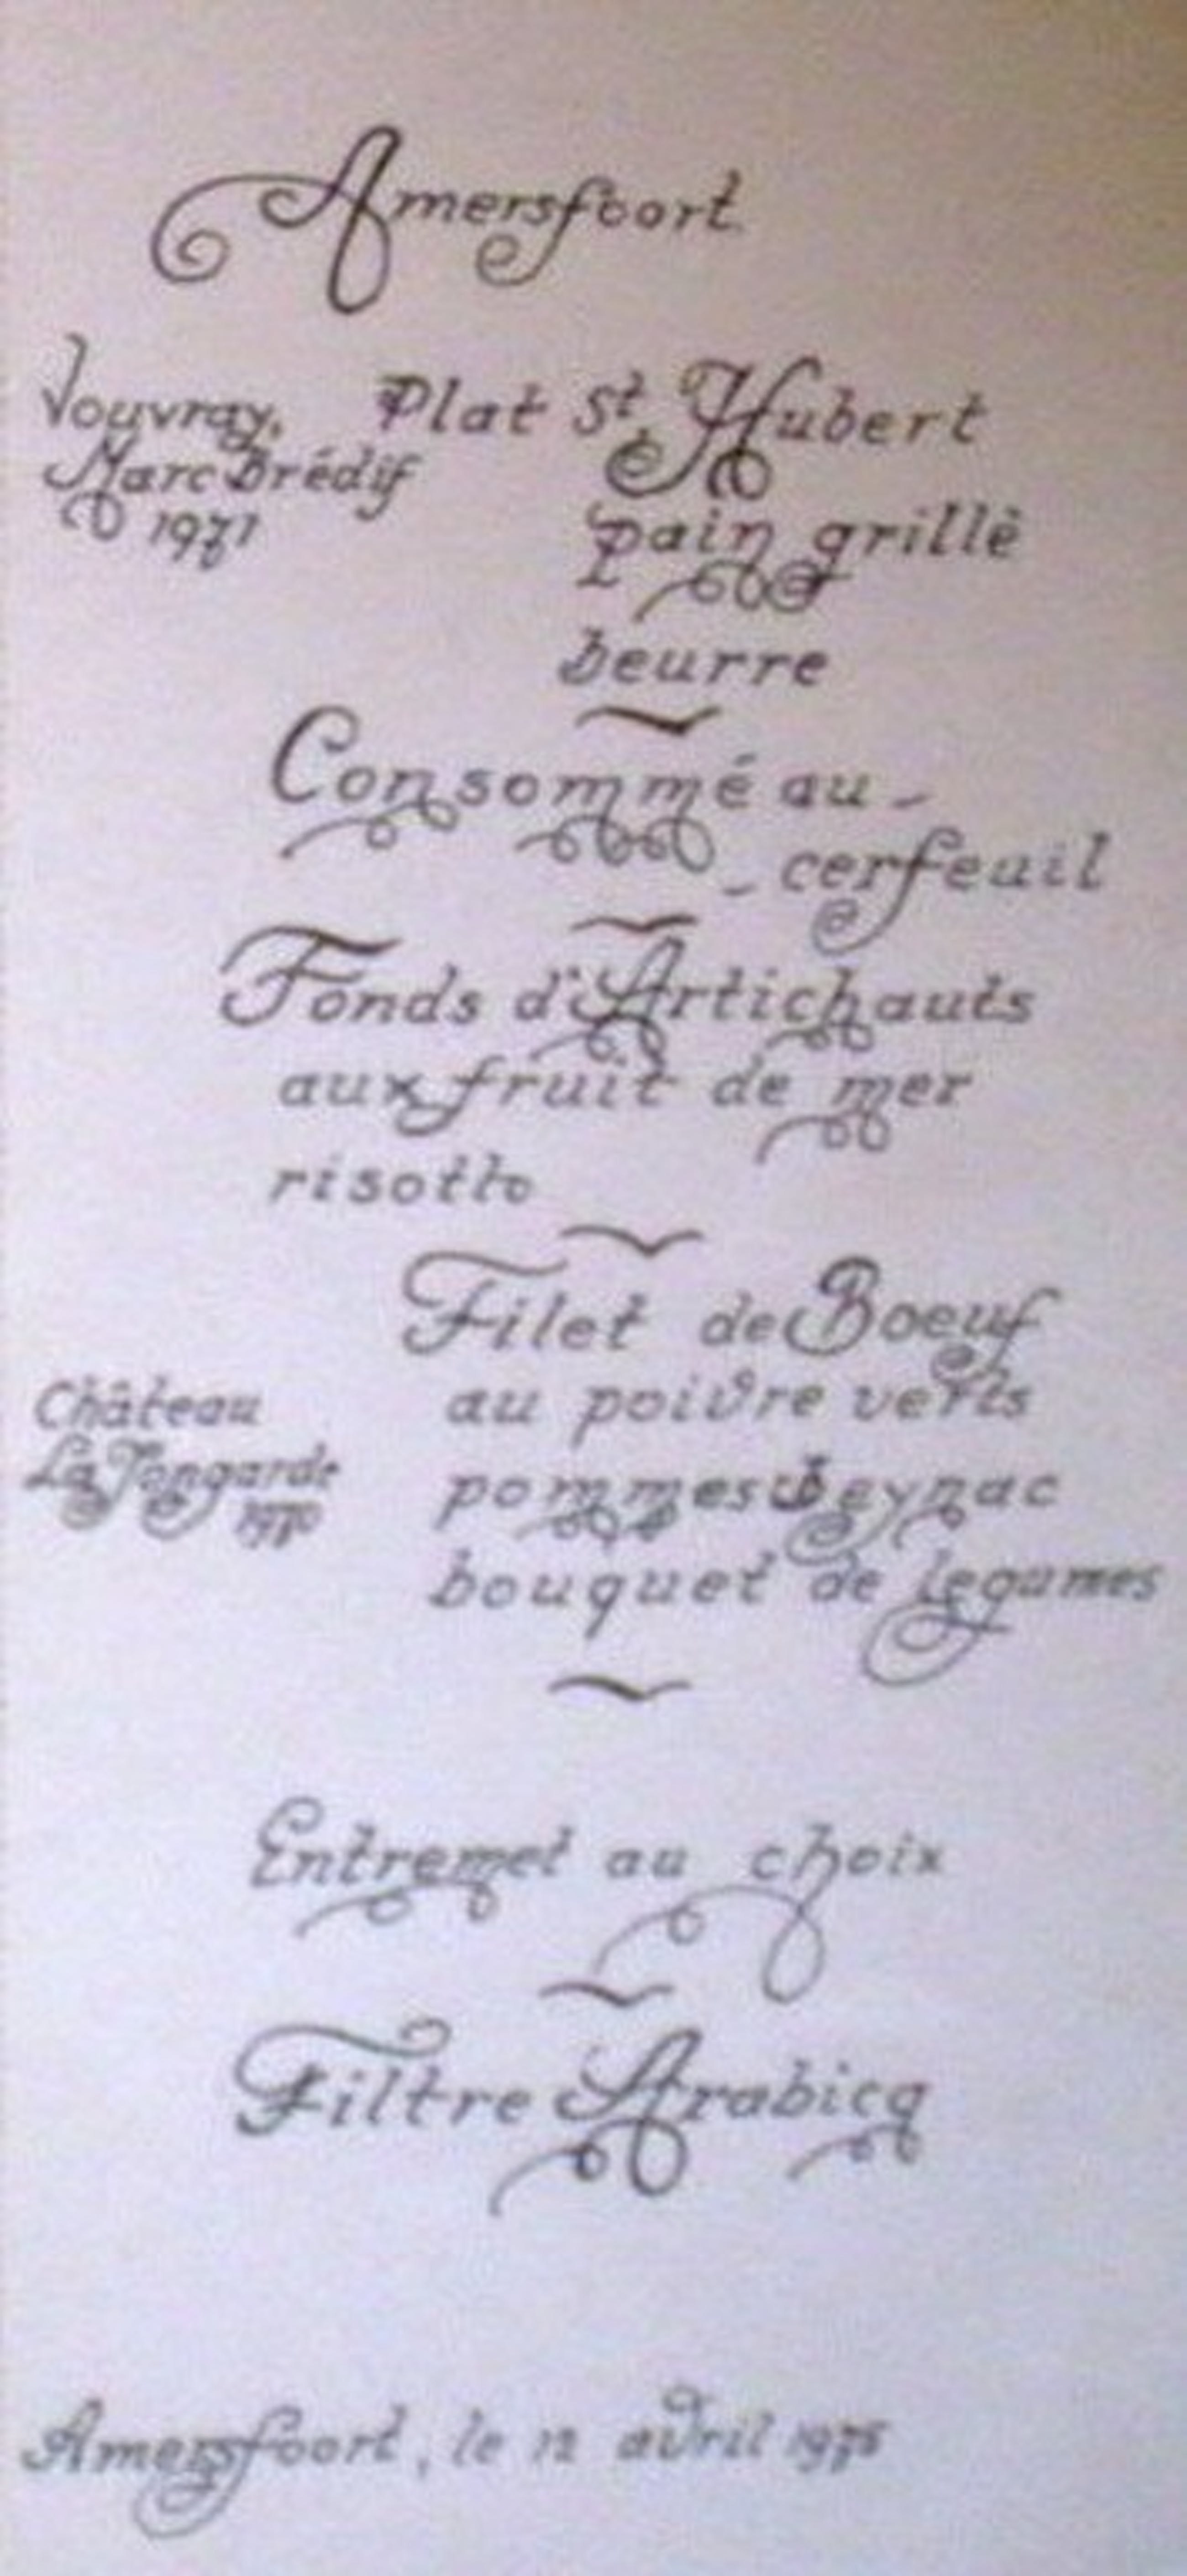 Amersfoort
Vouvray, Plat St. Hubert
Marc Brédif
1971 pain grillè
beurre
Consommé au -
- cerfeuil
Fonds d'Artichauts
aux fruit de mer
risotto
Filet de Boeuf
Château au poivre verts
La Tongarde pommes Beynac
bouquet de legumes
Entremet au choix
Filtre Arabica
Amersfoort, le 12 avril